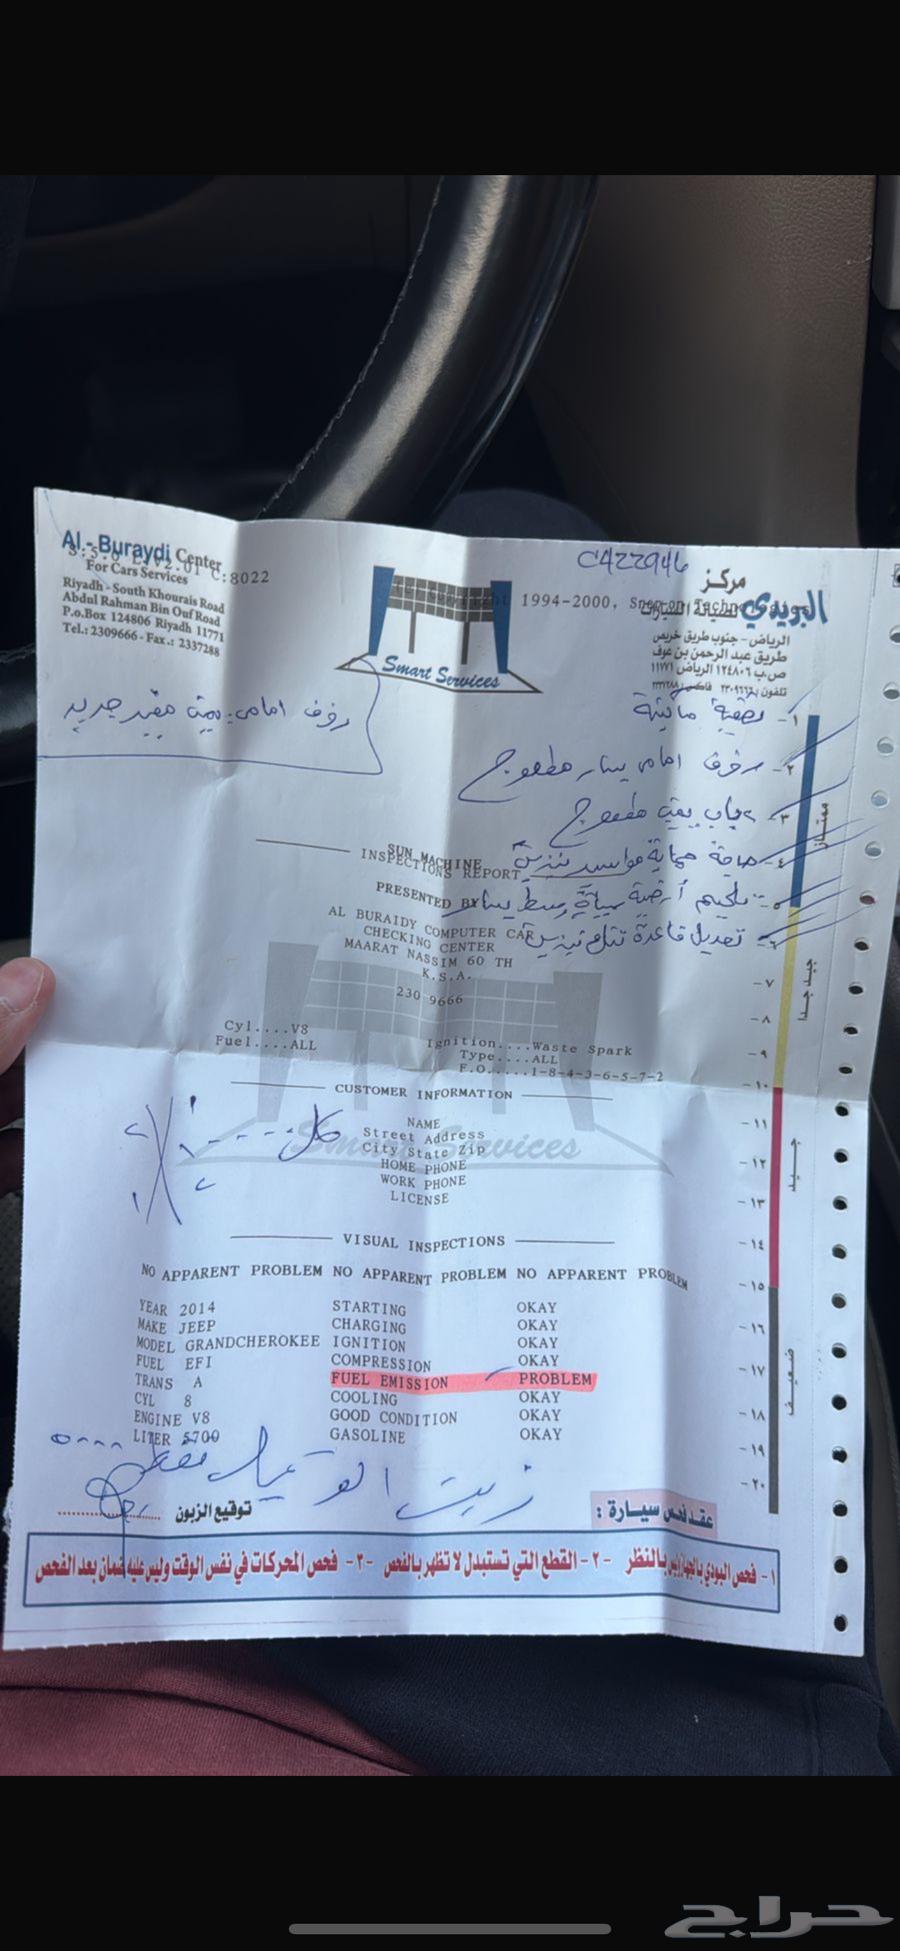 Al-Buraydi Center
S:5.0 L:V2.01 C:8022
For Cars Services
Riyadh - South Khourais Road
Abdul Rahman Bin Ouf Road
P.o.Box 124806 Riyadh 11771
Tel.: 2309666 - Fax.: 2337288
Smart Services
1994-2000, Snap-on Technologies
C422946
مركز
البريدي
الرياض - جنوب طريق خريس
طريق عبد الرحمن بن عوف
ص.ب ١٢٤٨٠٦ الرياض ١١٧٧١
تلفون ٢٣٠٩٦٦٦ فاكس ٢٣٣٧٢٨٨
رفرف امامي يمين مغير جديد
١-
٢- رفرف امامي يسار مطعوج
٣- باب يمين مطعوج
٤-
٥-
٦-
٧-
٨-
٩-
١٠-
١١-
١٢-
١٣-
١٤-
١٥-
١٦-
١٧-
١٨-
١٩-
٢٠-
ممتاز
جيد جدا
جيد
ضعيف
SUN MACHINE
INSPECTIONS REPORT
PRESENTED BY
AL BURAIDY COMPUTER CAR
CHECKING CENTER
MAARAT NASSIM 60 TH
K.S.A.
230 9666
Cyl....V8
Fuel....ALL
Ignition....Waste Spark
Type....ALL
F.O.....1-8-4-3-6-5-7-2
CUSTOMER INFORMATION
NAME
Street Address
City State Zip
HOME PHONE
WORK PHONE
LICENSE
Smart Services
VISUAL INSPECTIONS
NO APPARENT PROBLEM NO APPARENT PROBLEM NO APPARENT PROBLEM
YEAR 2014 STARTING OKAY
MAKE JEEP CHARGING OKAY
MODEL GRANDCHEROKEE IGNITION OKAY
FUEL EFI COMPRESSION OKAY
TRANS A FUEL EMISSION PROBLEM
CYL 8 COOLING OKAY
ENGINE V8 GOOD CONDITION OKAY
LITER 5700 GASOLINE OKAY
توقيع الزبون
عقد فحص سيارة :
١- فحص البودي بالجهاز وليس بالنظر -٢- القطع التي تستبدل لا تظهر بالفحص -٣- فحص المحركات في نفس الوقت وليس عليه ضمان بعد الفحص
حراج